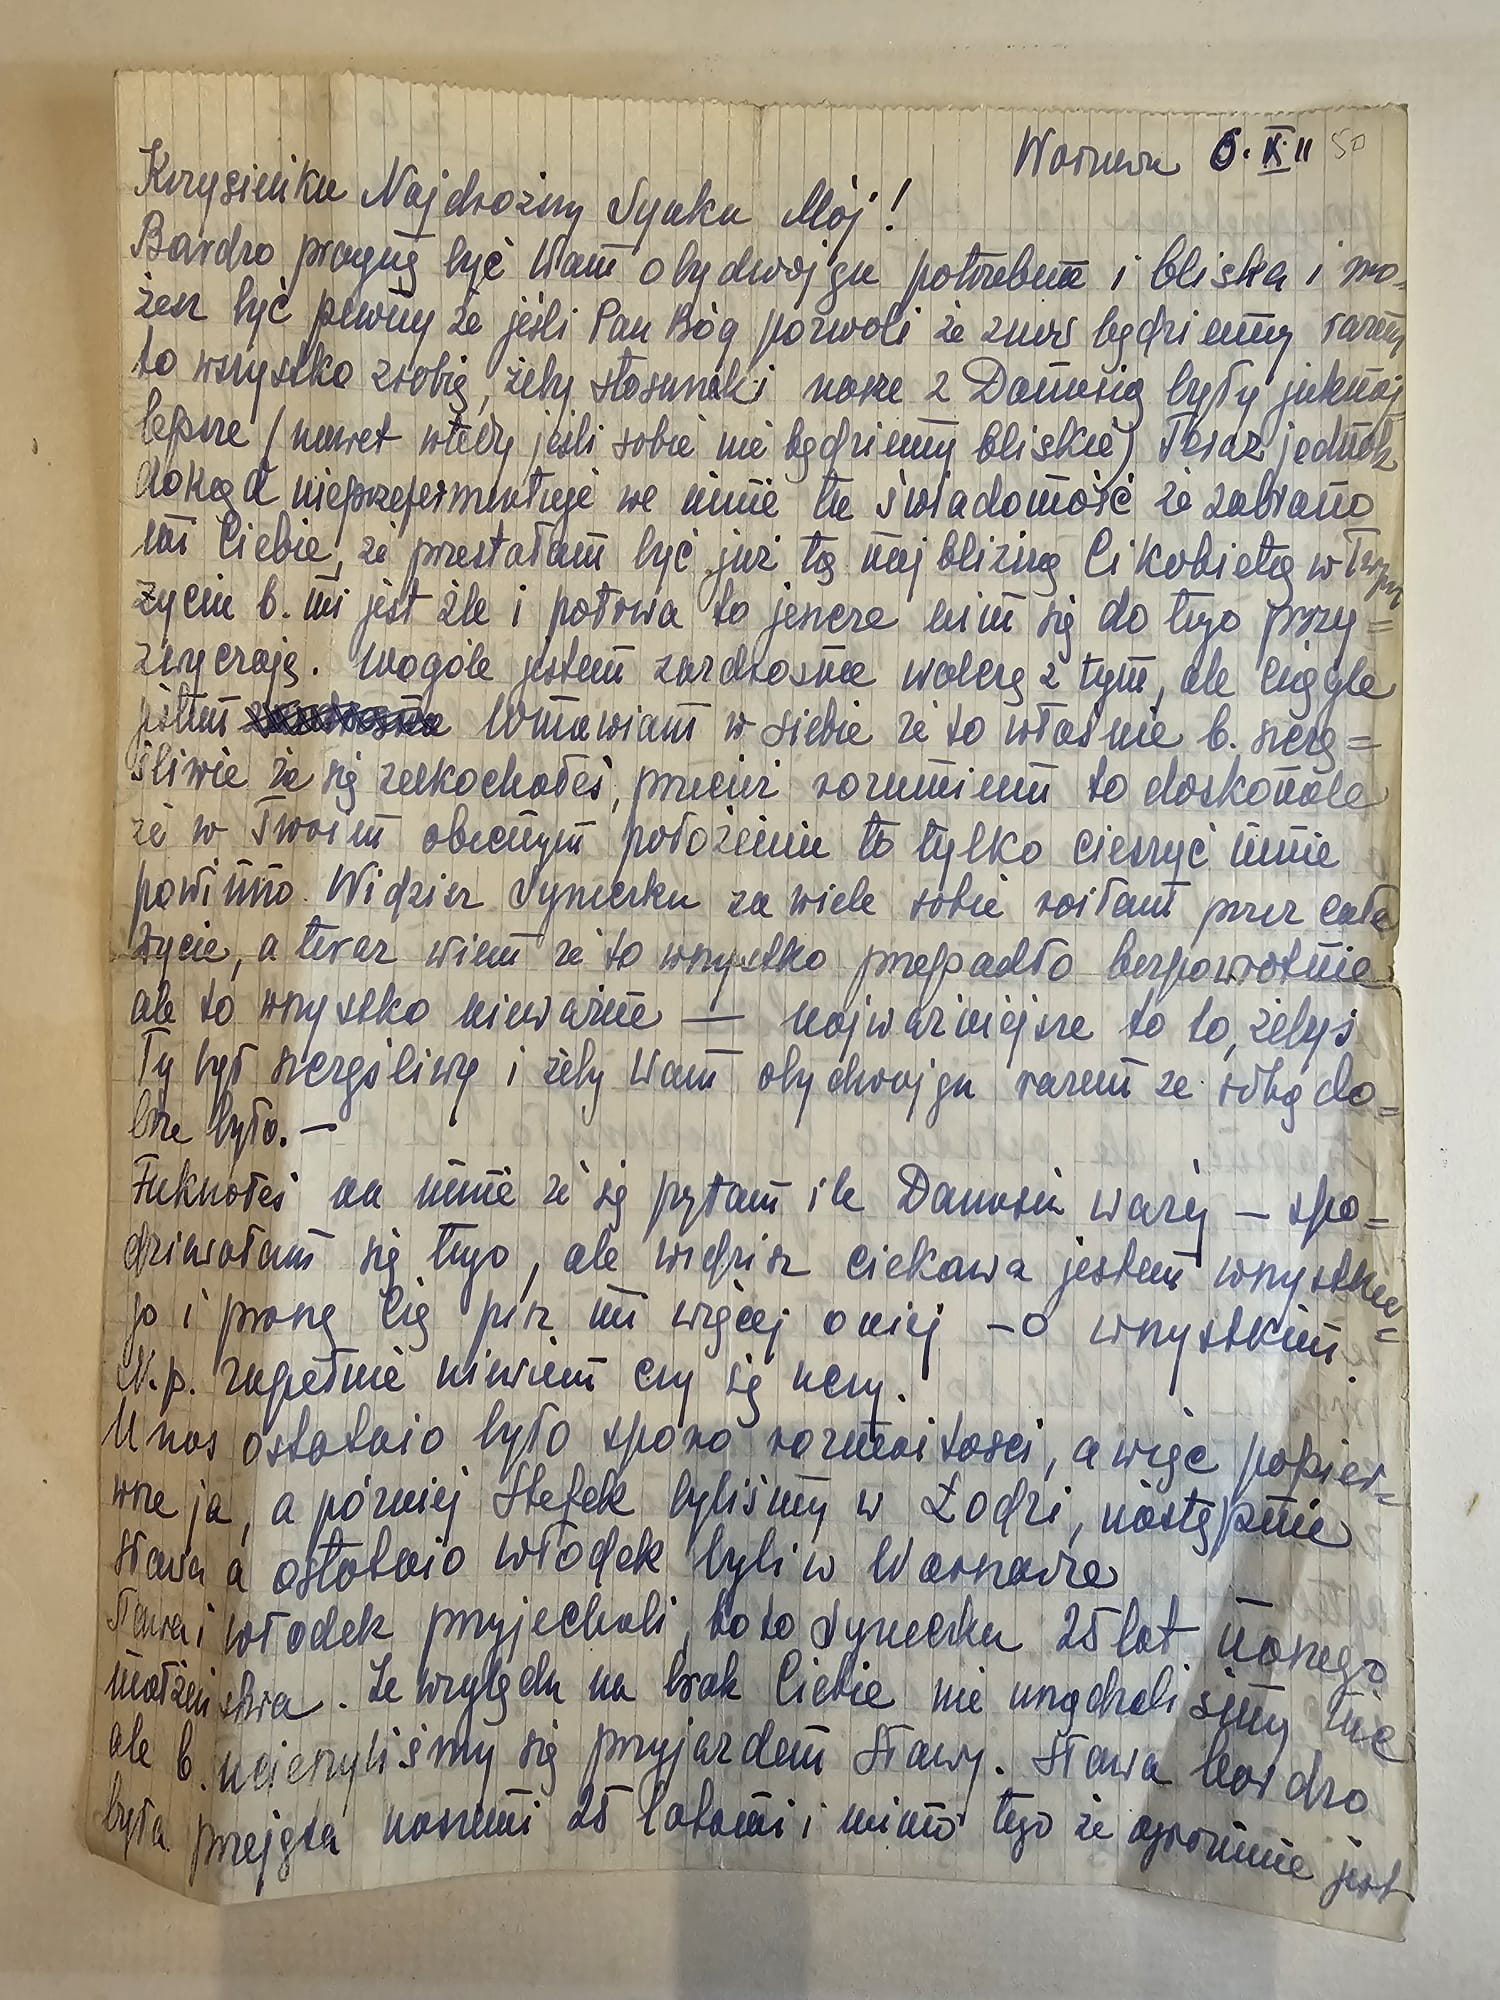 Warszawa 6.X." 50
Krzysieńku Najdroższy Synku Mój!
Bardzo pragnę być Wam obydwojgu potrzebna i bliska i mo=
żesz być pewny że jeśli Pan Bóg pozwoli że znów będziemy razem
to wszystko zrobię, żeby stosunki nasze z Danusią były jaknaj
lepsze (nawet wtedy jeśli sobie nie będziemy bliskie) Teraz jednak
dokąd nieprzefermentuje we mnie ta świadomość że zabrano
mi Ciebie, że przestałam być już tą najbliższą Ci kobietą w Twym
życiu b. mi jest źle i potrwa to jeszcze nim się do tego przy=
zwyczaję. Wogóle jestem zazdrosna walczę z tym, ale ciągle
jestem Wmawiam w siebie że to właśnie b. szczę=
śliwie że się zakochałeś, przecież rozumiem to doskonale
że w Twoim obecnym położeniu to tylko cieszyć mnie
powinno. Widzisz Syneczku za wiele sobie roiłam przez całe
życie, a teraz wiem że to wszystko przepadło bezpowrotnie
ale to wszystko nieważne — najważniejsze to to, żebyś
Ty był szczęśliwy i żeby Wam obydwojgu razem ze sobą do=
brze było. —
Fuknąłeś na mnie że się pytam ile Danusia waży — spo=
dziewałam się tego, ale widzisz ciekawa jestem wszystkie=
go i proszę Cię pisz mi więcej o niej — o wszystkim
N.p. zupełnie niewiem czy się uczy.
U nas ostatnio było sporo rozmaitości, a więc popier=
wsze ja, a później Stefek byliśmy w Łodzi, następnie
Sława a ostatnio Włodek byli w Warszawie
Sława i Włodek przyjechali, bo to Syneczku 25 lat naszego
małżeństwa. Ze względu na brak Ciebie nie urządzaliśmy nic
ale b. ucieszyliśmy się przyjazdem Sławy. Sława bardzo
była przejęta naszemi 25 latami i mimo tego że ogromnie jest